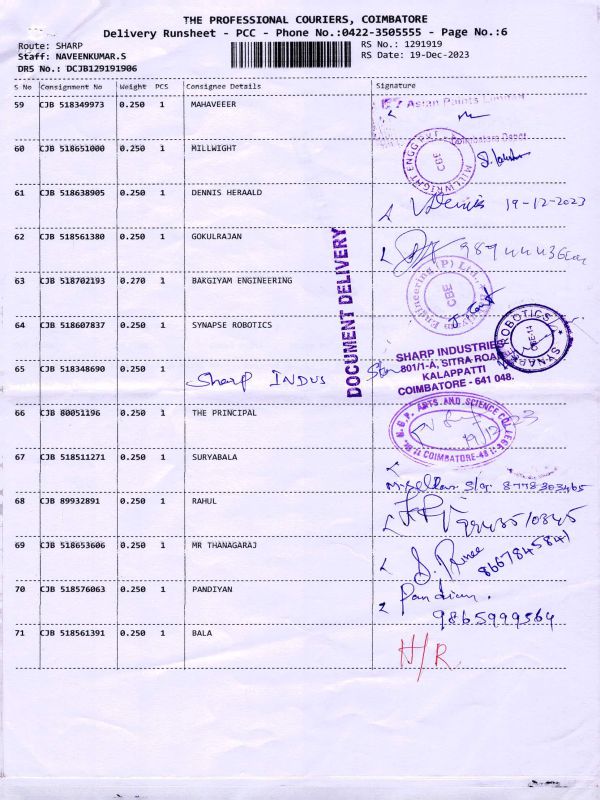 THE PROFESSIONAL COURIERS, COIMBATORE
Delivery Runsheet - PCC - Phone No.:0422-3505555 - Page No.:6
Route: SHARP
RS No.: 1291919
Staff: NAVEENKUMAR.S
RS Date: 19-Dec-2023
DRS No.: DCJB129191906
S No Consignment No Weight PCS Consignee Details Signature
59 CJB 518349973 0.250 1 MAHAVEEER
Asian Paints Limited
Coimbatore Depot
60 CJB 518651000 0.250 1 MILLWIGHT
MILLWRIGHT ENGG PVT
CBE
61 CJB 518638905 0.250 1 DENNIS HERAALD
V.Dennis 19-12-2023
62 CJB 518561380 0.250 1 GOKULRAJAN
DOCUMENT DELIVERY
63 CJB 518702193 0.270 1 BAKGIYAM ENGINEERING
Engineering (P) Ltd.
CBE
64 CJB 518607837 0.250 1 SYNAPSE ROBOTICS
SYNAPSE ROBOTICS
CBE-14
65 CJB 518348690 0.250 1 Sharp INDUS
SHARP INDUSTRIES
801/1-A, SITRA ROAD
KALAPPATTI
COIMBATORE - 641 048.
66 CJB 80051196 0.250 1 THE PRINCIPAL
ARTS AND SCIENCE COLLEGE
COIMBATORE-48
19/12/23
67 CJB 518511271 0.250 1 SURYABALA
8778303465
68 CJB 89932891 0.250 1 RAHUL
9943510845
69 CJB 518653606 0.250 1 MR THANAGARAJ
S. Prince 8667845841
70 CJB 518576063 0.250 1 PANDIYAN
Pandian.
9865999564
71 CJB 518561391 0.250 1 BALA
H/R